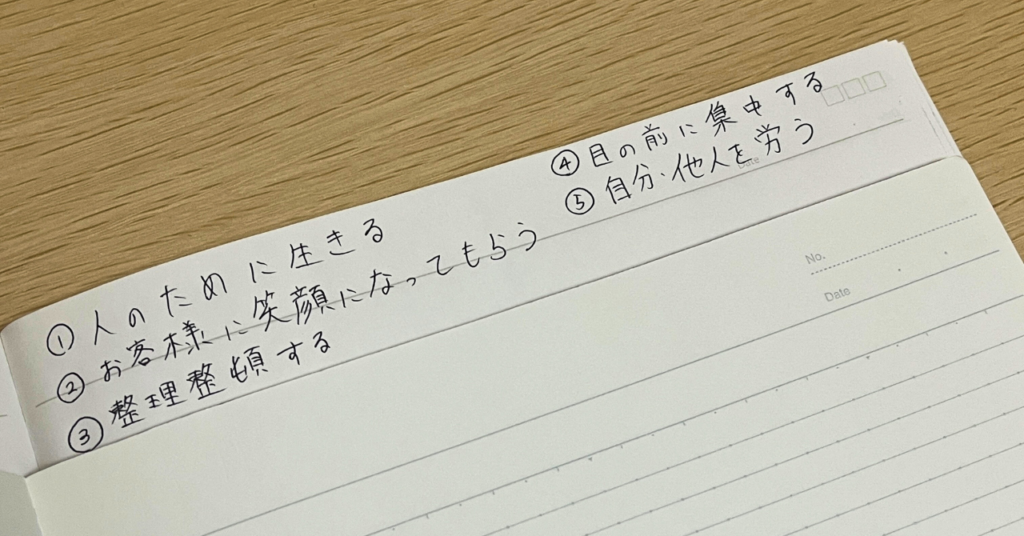 ① 人のために生きる
② お客様に笑顔になってもらう
③ 整理整頓する
④ 目の前に集中する
⑤ 自分・他人を労う
Date
No.
Date